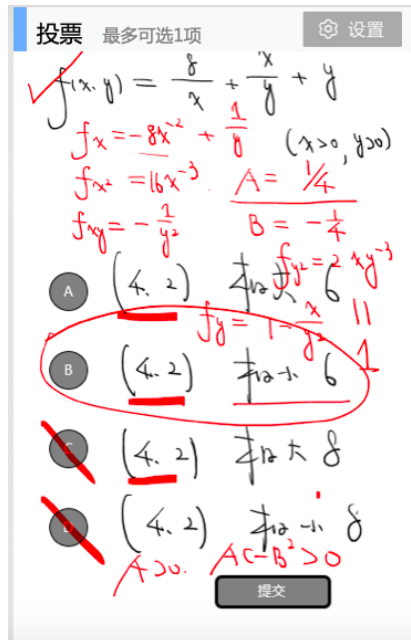 投票 最多可选1项 设置
f(x,y) = 8/x + x/y + y
fx = -8x⁻² + 1/y (x>0, y>0)
fx² = 16x⁻³. A = 1/4
fxy = -1/y² B = -1/4
fy² = 2xy⁻³
A (4,2) 极大 6
fy = 1 - x/y² 11
B (4,2) 极小 6 1
C (4,2) 极大 8
D (4,2) 极小 8
A>0. AC-B²>0
提交